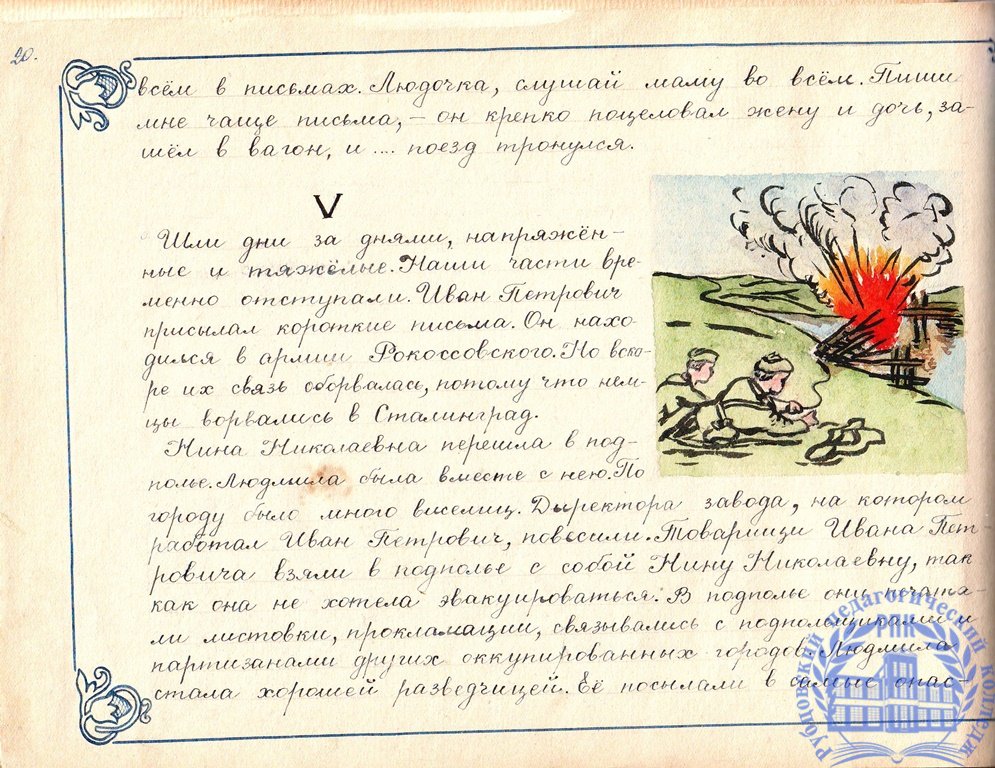 20.
всём в письмах. Людочка, слушай маму во всём. Пиши
мне чаще письма, – он крепко поцеловал жену и дочь, за-
шёл в вагон, и .... поезд тронулся.
V
Шли дни за днями, напряжён-
ные и тяжёлые. Наши части вре-
менно отступали. Иван Петрович
присылал короткие письма. Он нахо-
дился в армии Рокоссовского. Но вско-
ре их связь оборвалась, потому что нем-
цы ворвались в Сталинград.
Нина Николаевна перешла в под-
полье. Людмила была вместе с нею. По
городу было много виселиц. Директора завода, на котором
работал Иван Петрович, повесили. Товарищи Ивана Пет-
ровича взяли в подполье с собой Нину Николаевну, так
как она не хотела эвакуироваться. В подполье они печата-
ли листовки, прокламации, связывались с подпольщиками и
партизанами других оккупированных городов. Людмила
стала хорошей разведчицей. Её посылали в самые опас-
Рубцовский педагогический колледж
РПК